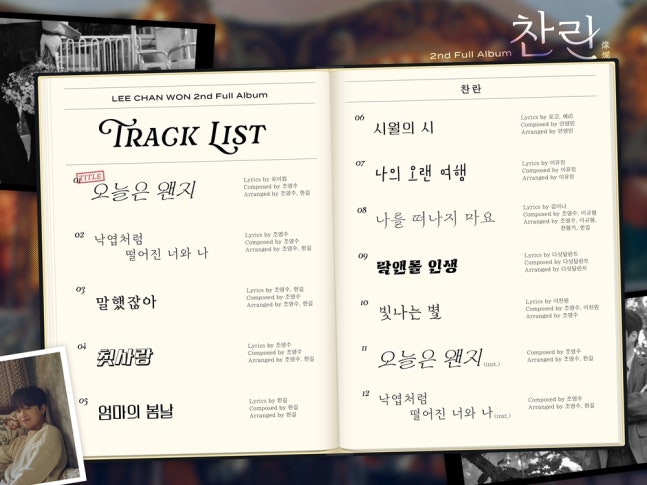 2nd Full Album 찬란
燦爛
LEE CHAN WON 2nd Full Album
TRACK LIST
01 TITLE 오늘은 왠지
Lyrics by 로이킴
Composed by 조영수
Arranged by 조영수, 한길
02 낙엽처럼
떨어진 너와 나
Lyrics by 조영수
Composed by 조영수
Arranged by 조영수, 한길
03 말했잖아
Lyrics by 조영수, 한길
Composed by 조영수
Arranged by 조영수, 한길
04 첫사랑
Lyrics by 조영수
Composed by 조영수
Arranged by 조영수, 한길
05 엄마의 봄날
Lyrics by 한길
Composed by 한길
Arranged by 한길
찬란
06 시월의 시
Lyrics by 로코, 베리
Composed by 안영민
Arranged by 안영민
07 나의 오랜 여행
Lyrics by 이유진
Composed by 이유진
Arranged by 이유진
08 나를 떠나지 마요
Lyrics by 김이나
Composed by 조영수, 이규형
Arranged by 조영수, 이규형,
한길
09 락앤롤 인생
Lyrics by 다섯달란트
Composed by 다섯달란트
Arranged by 다섯달란트
10 빛나는 별
Lyrics by 이찬원
Composed by 조영수, 이찬원
Arranged by 조영수
11 오늘은 왠지 (inst.)
Composed by 조영수
Arranged by 조영수, 한길
12 낙엽처럼
떨어진 너와 나 (inst.)
Composed by 조영수
Arranged by 조영수, 한길